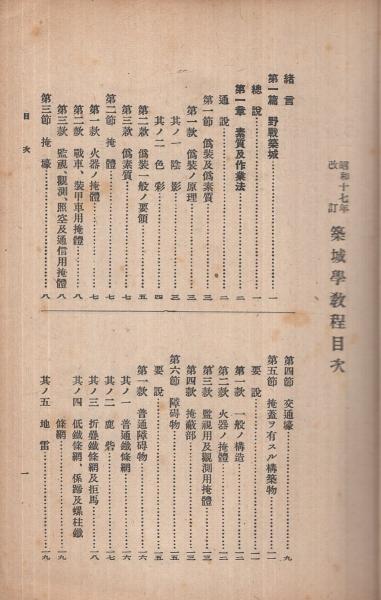 昭和十七年
改訂
築城學教程目次
緒言
第一篇 野戰築城……一
總說……一
第一章 素質及作業法……二
通說……二
第一節 僞裝及僞素質……二
第一款 僞裝ノ原理……三
其ノ一 陰影……三
其ノ二 色彩……四
第二款 僞裝一般ノ要領……五
第三款 僞素質……七
第二節 掩體……七
第一款 火器ノ掩體……七
第二款 戰車、裝甲車用掩體……八
第三款 監視、觀測、照空及通信用掩體……八
第三節 掩壕……八
第四節 交通壕……九
第五節 掩蓋ヲ有スル構築物……一一
要說……一一
第一款 一般ノ構造……一二
第二款 火器ノ掩體……一二
第三款 監視用及觀測用掩體……一三
第四款 掩蔽部……一三
第六節 障碍物……一五
要說……一五
第一款 普通障碍物……一六
其ノ一 普通鐵條網……一六
其ノ二 鹿砦……一七
其ノ三 折疊鐵條網及拒馬……一八
其ノ四 低鐵條網、係蹄及螺柱鐵
條網……一九
其ノ五 地雷……一九
目次
一